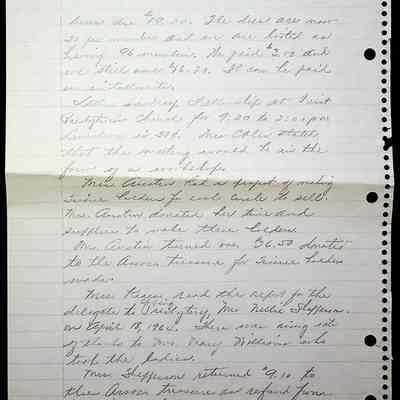 dues are $19.20. The dues are now
20 per member and we are listed as
having 96 members. We paid $3.00 and
we still owe $16.20. It can be paid
in installments.
fellowship at First
Presbyterian Church for 9:30 to 2:00 p.m.
luncheon is 50¢. Mrs.
that the meeting would be in the
form of a workshop.
Mrs. Austin had a project of making
holders for each circle to sell.
Mrs. Austin donated her time and
supplies to make these holders.
Mrs. Austin turned over $6.50 donated
to the treasure for holders
made.
Miss read the report for the
delegate to Spring Presbytery, Mrs. Nellie Shepperson
on April 18, 196 . There was rising vote
of thanks to Mrs. Mary Williams who
took the ladies.
Mrs. Shepperson returned $9.10 to
the treasure as refund from